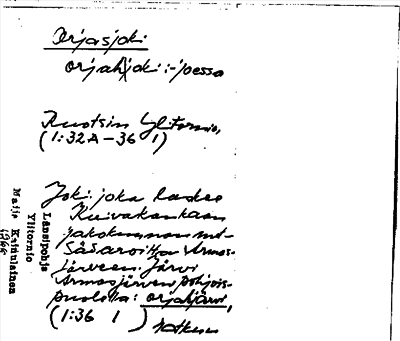 Orjasjoki
orjahjoki :-joessa
Ruotsin Ylitornio,
(1:32A-36 1)
Joki, joka laskee
Kuivakankaan
jakokunnan met-
Armas-
järveen. Järvi
Armasjärven pohjois-
puolella: orjahjärvi,
(1:36 1) Jatkuu
Länsipohja
Ylitornio
Maija Keinulainen
1966